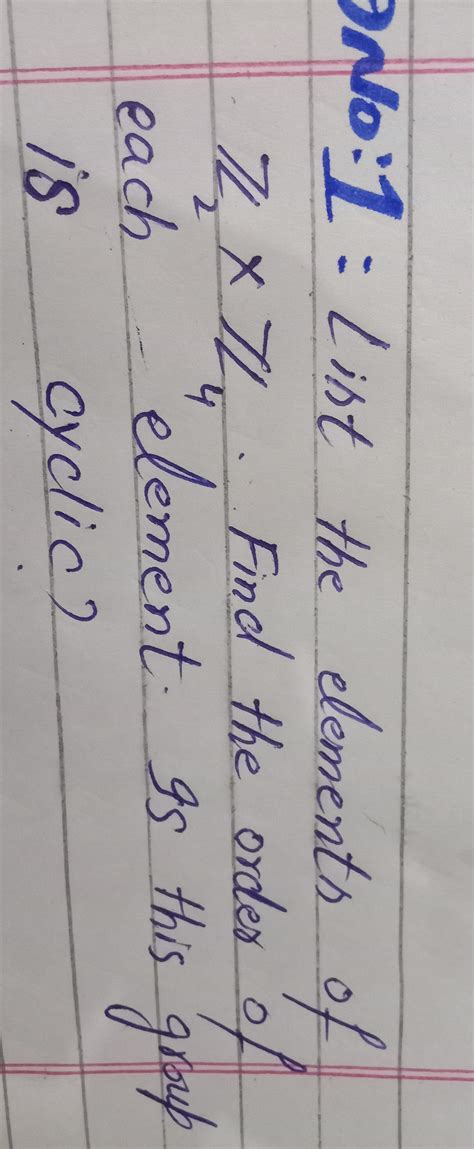 QNo:1 = List the elements of
Z₂ × Z₄. Find the order of
each element. Is this group
is cyclic?